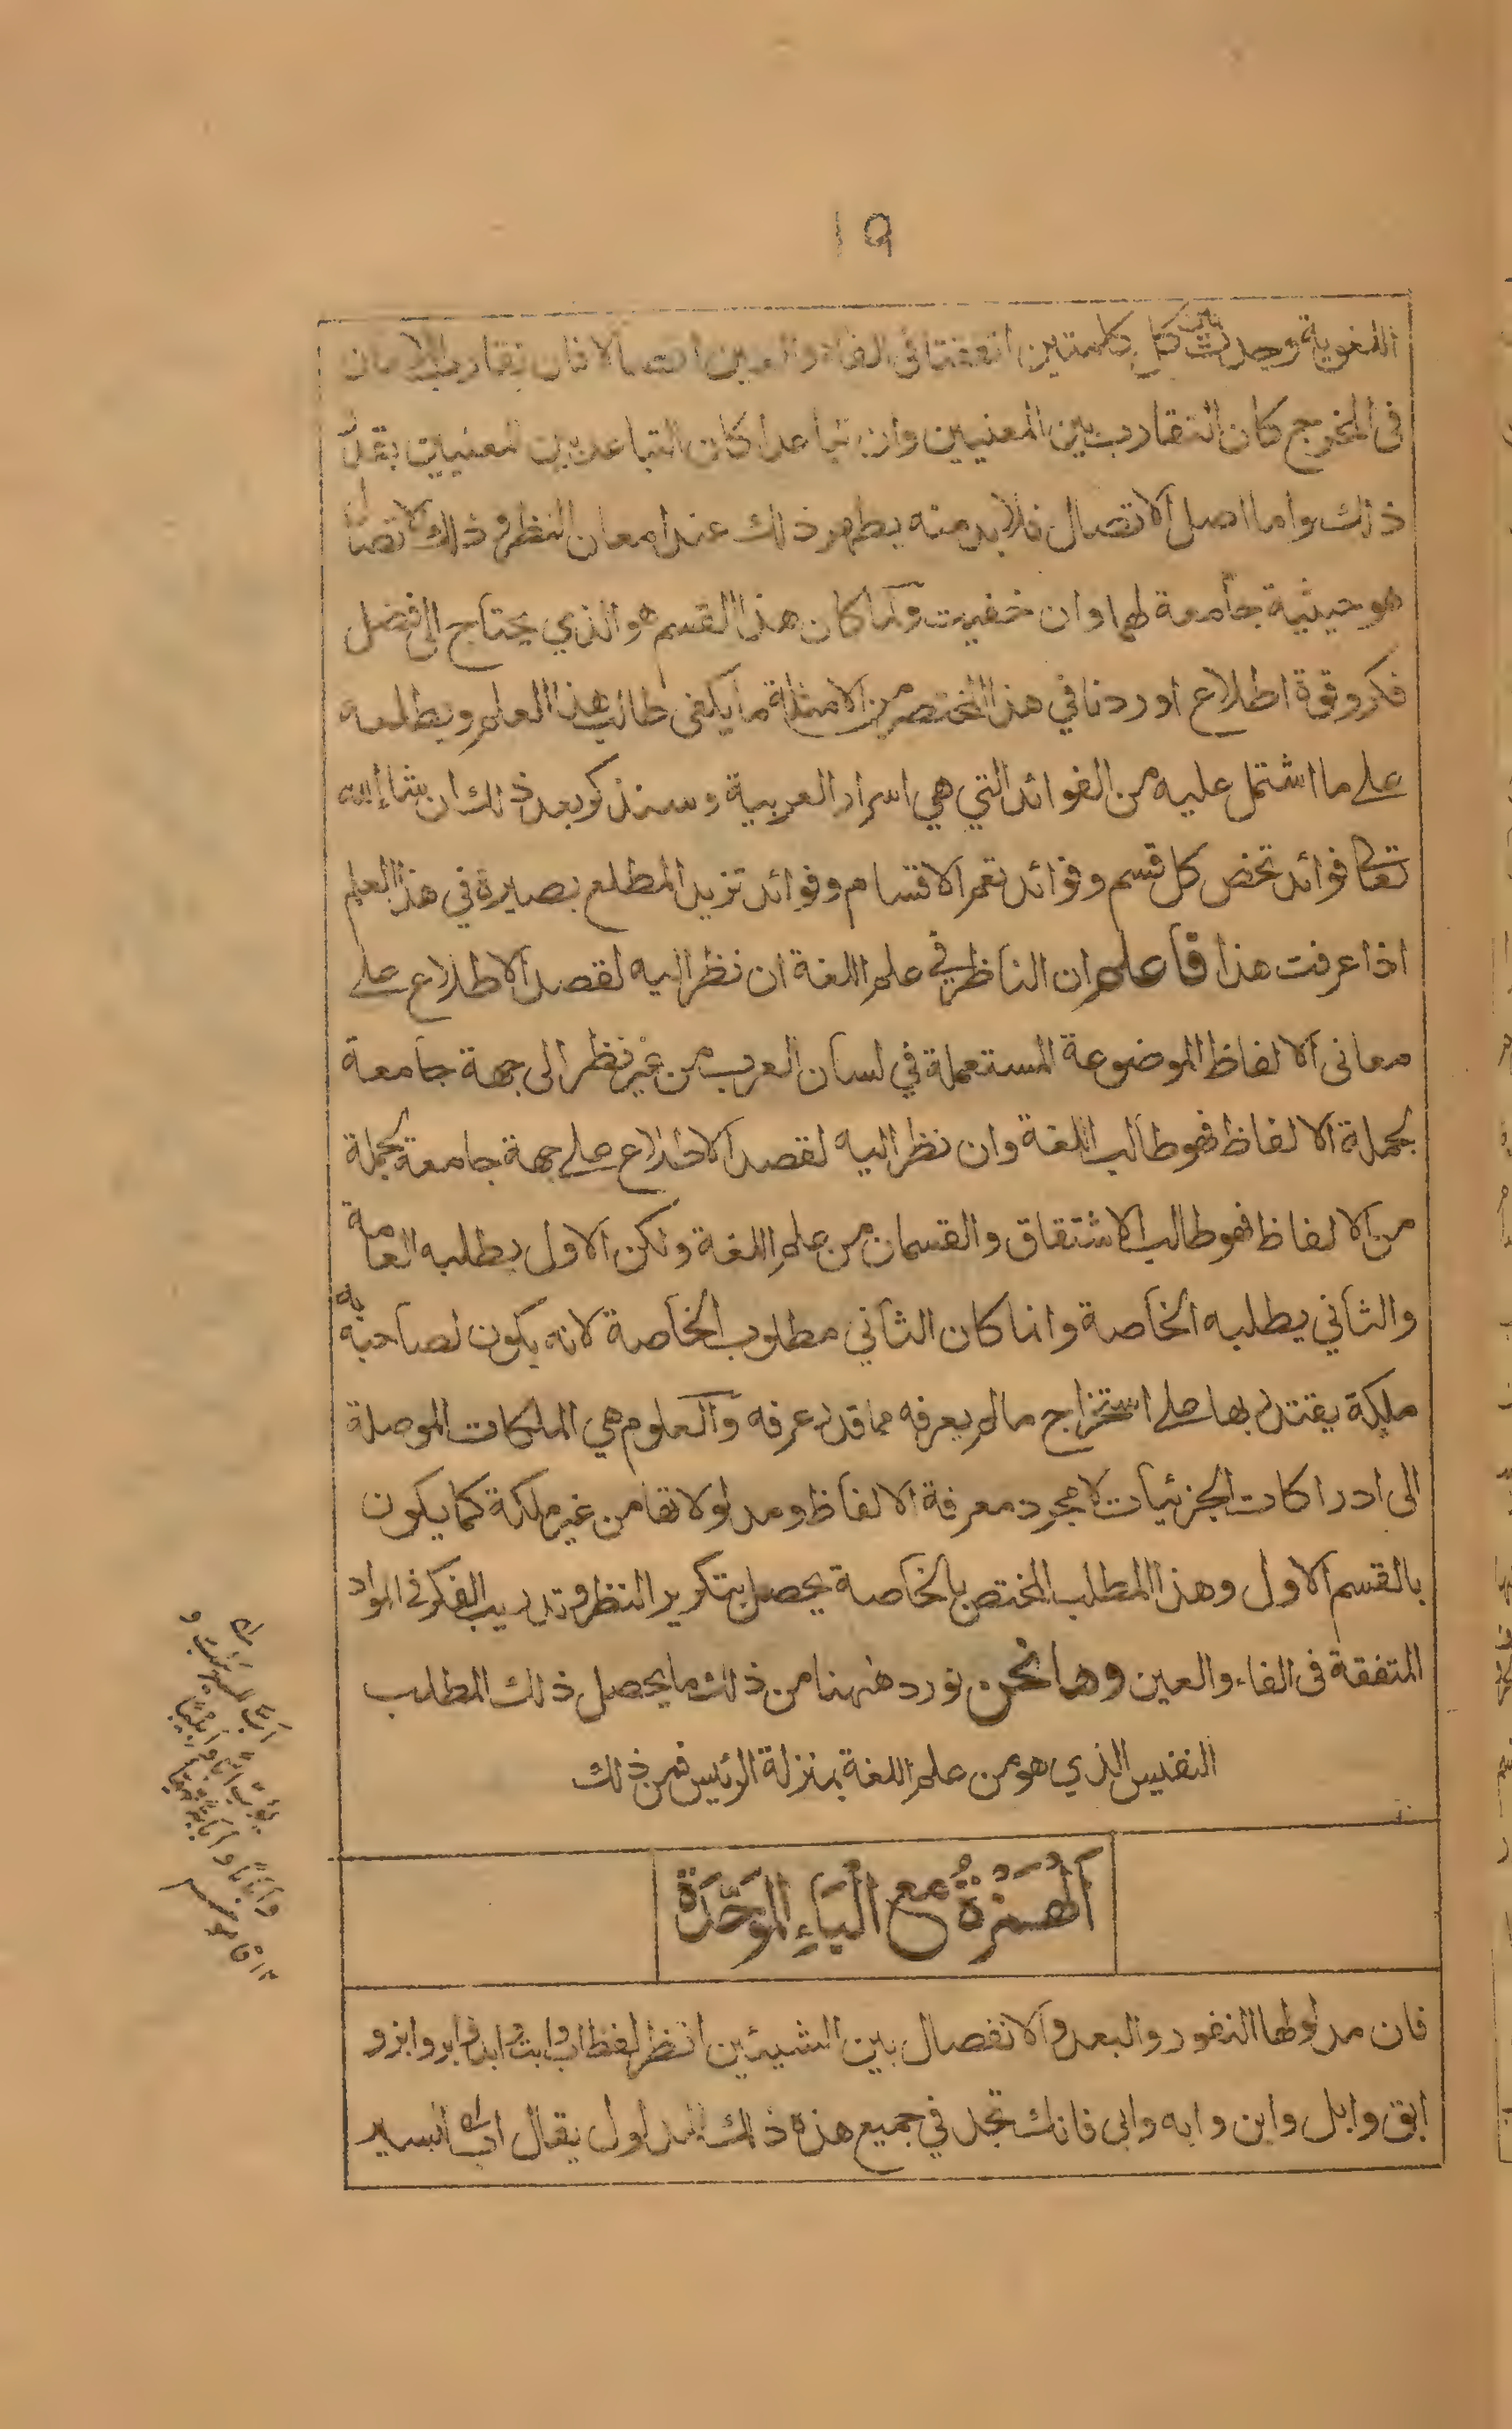 ١٩
اللغوية وجدت بين كل كلمتين اتفقتا في الفاء والعين اتصالا فان تقارب اللامان
فى المخرج كان التقارب بين المعنيين وان تباعدا كان التباعد بين المعنيين بقدر
ذلك واما اصل الاتصال فلا بد منه يظهر ذلك عند امعان النظر و ذلك الاتصال
هو حيثية جامعة لهما وان خفيت ولما كان هذا القسم هو الذي يحتاج الى فضل
فكر وقوة اطلاع اوردنا في هذا المختصر من الامثلة ما يكفى طالب هذا العلم ويطلعه
على ما اشتمل عليه من الفوائد التي هي اسرار العربية وسنذكر بعد ذلك ان شاء الله
تعالى فوائد تخص كل قسم وفوائد تعم الاقسام وفوائد تزيد المطلع بصيرة في هذا العلم
اذا عرفت هذا فاعلم ان الناظر في علم اللغة ان نظر اليه لقصد الاطلاع على
معانى الالفاظ الموضوعة المستعملة في لسان العرب من غير نظر الى جهة جامعة
لجملة الالفاظ فهو طالب اللغة وان نظر اليه لقصد الاطلاع على جهة جامعة لجملة
من الالفاظ فهو طالب الاشتقاق والقسمان من علم اللغة ولكن الاول يطلبه العامة
والثاني يطلبه الخاصة وانما كان الثاني مطلوب الخاصة لانه يكون لصاحبه به
ملكة يقتدر بها على استخراج مالم يعرفه مما قد عرفه والعلوم هي الملكات الموصلة
الى ادراكات الجزئيات لا مجرد معرفة الالفاظ ومدلولاتها من غير ملكة كما يكون
بالقسم الاول وهذا المطلب المختص بالخاصة يحصل بتكرير النظر وتدريب الفكر في المواد
المتفقة فى الفاء والعين وها نحن نورد ههنا من ذلك ما يحصل ذلك المطلب
النفيس الذي هو من علم اللغة بمنزلة الرئيس فمن ذلك
اَلْهَمْزَةُ مع الْبَاءِ الْمُوَحَّدَة
فان مدلولها النفور والبعد والانفصال بين الشيئين انظر لفظ اب وابت وابد وابر وابز و
ابق وابل وابن وابه وابى فانك تجد في جميع هذه ذلك المدلول يقال اب للسير
اب للسير يئب
١٢ قاموس